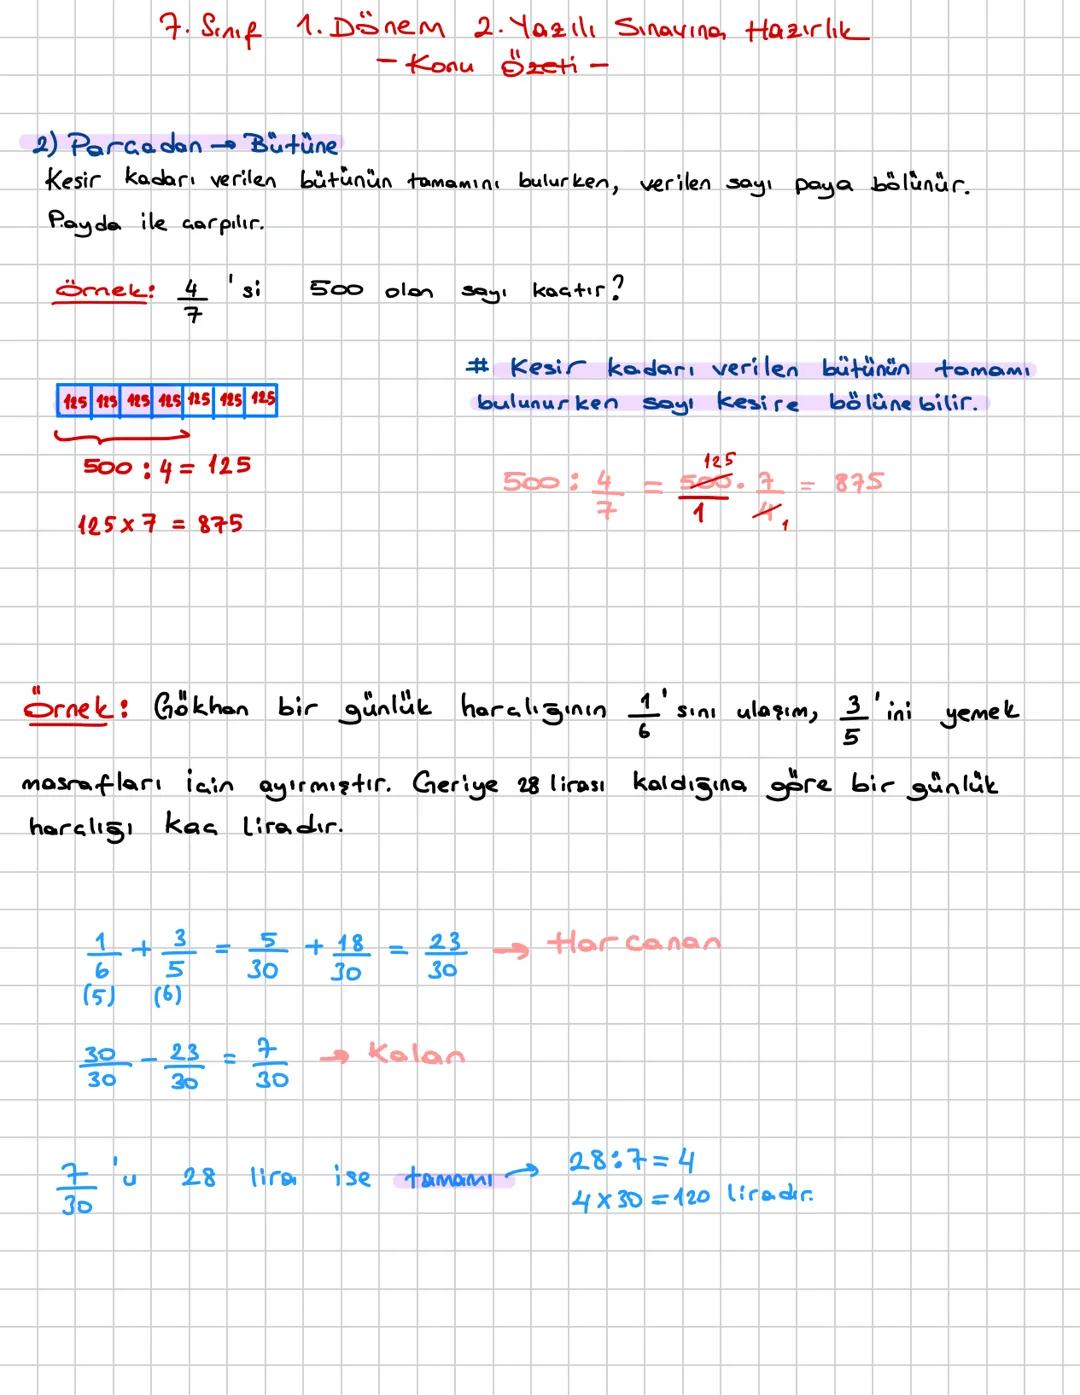 7. Sınıf 1. Dönem 2. Yazılı Sınavına Hazırlık
- Konu Özeti -
2) Parçadan → Bütüne
Kesir kadarı verilen bütünün tamamını bulurken, verilen sayı paya bölünür.
Payda ile çarpılır.
Örnek: 4/7 'si 500 olan sayı kaçtır?
# Kesir kadarı verilen bütünün tamamı
bulunurken sayı kesire bölünebilir.
125 125 125 125 125 125 125
500 : 4 = 125
125 x 7 = 875
500 : 4/7 = 500/1 . 7/4 = 875
125
1
Örnek: Gökhan bir günlük harçlığının 1/6 'sını ulaşım, 3/5 'ini yemek
masrafları için ayırmıştır. Geriye 28 lirası kaldığına göre bir günlük
harçlığı kaç liradır.
1/6 + 3/5 = 5/30 + 18/30 = 23/30 → Harcanan
(5) (6)
30/30 - 23/30 = 7/30 → Kalan
7/30 'u 28 lira ise tamamı → 28:7=4
4 x 30 = 120 liradır.